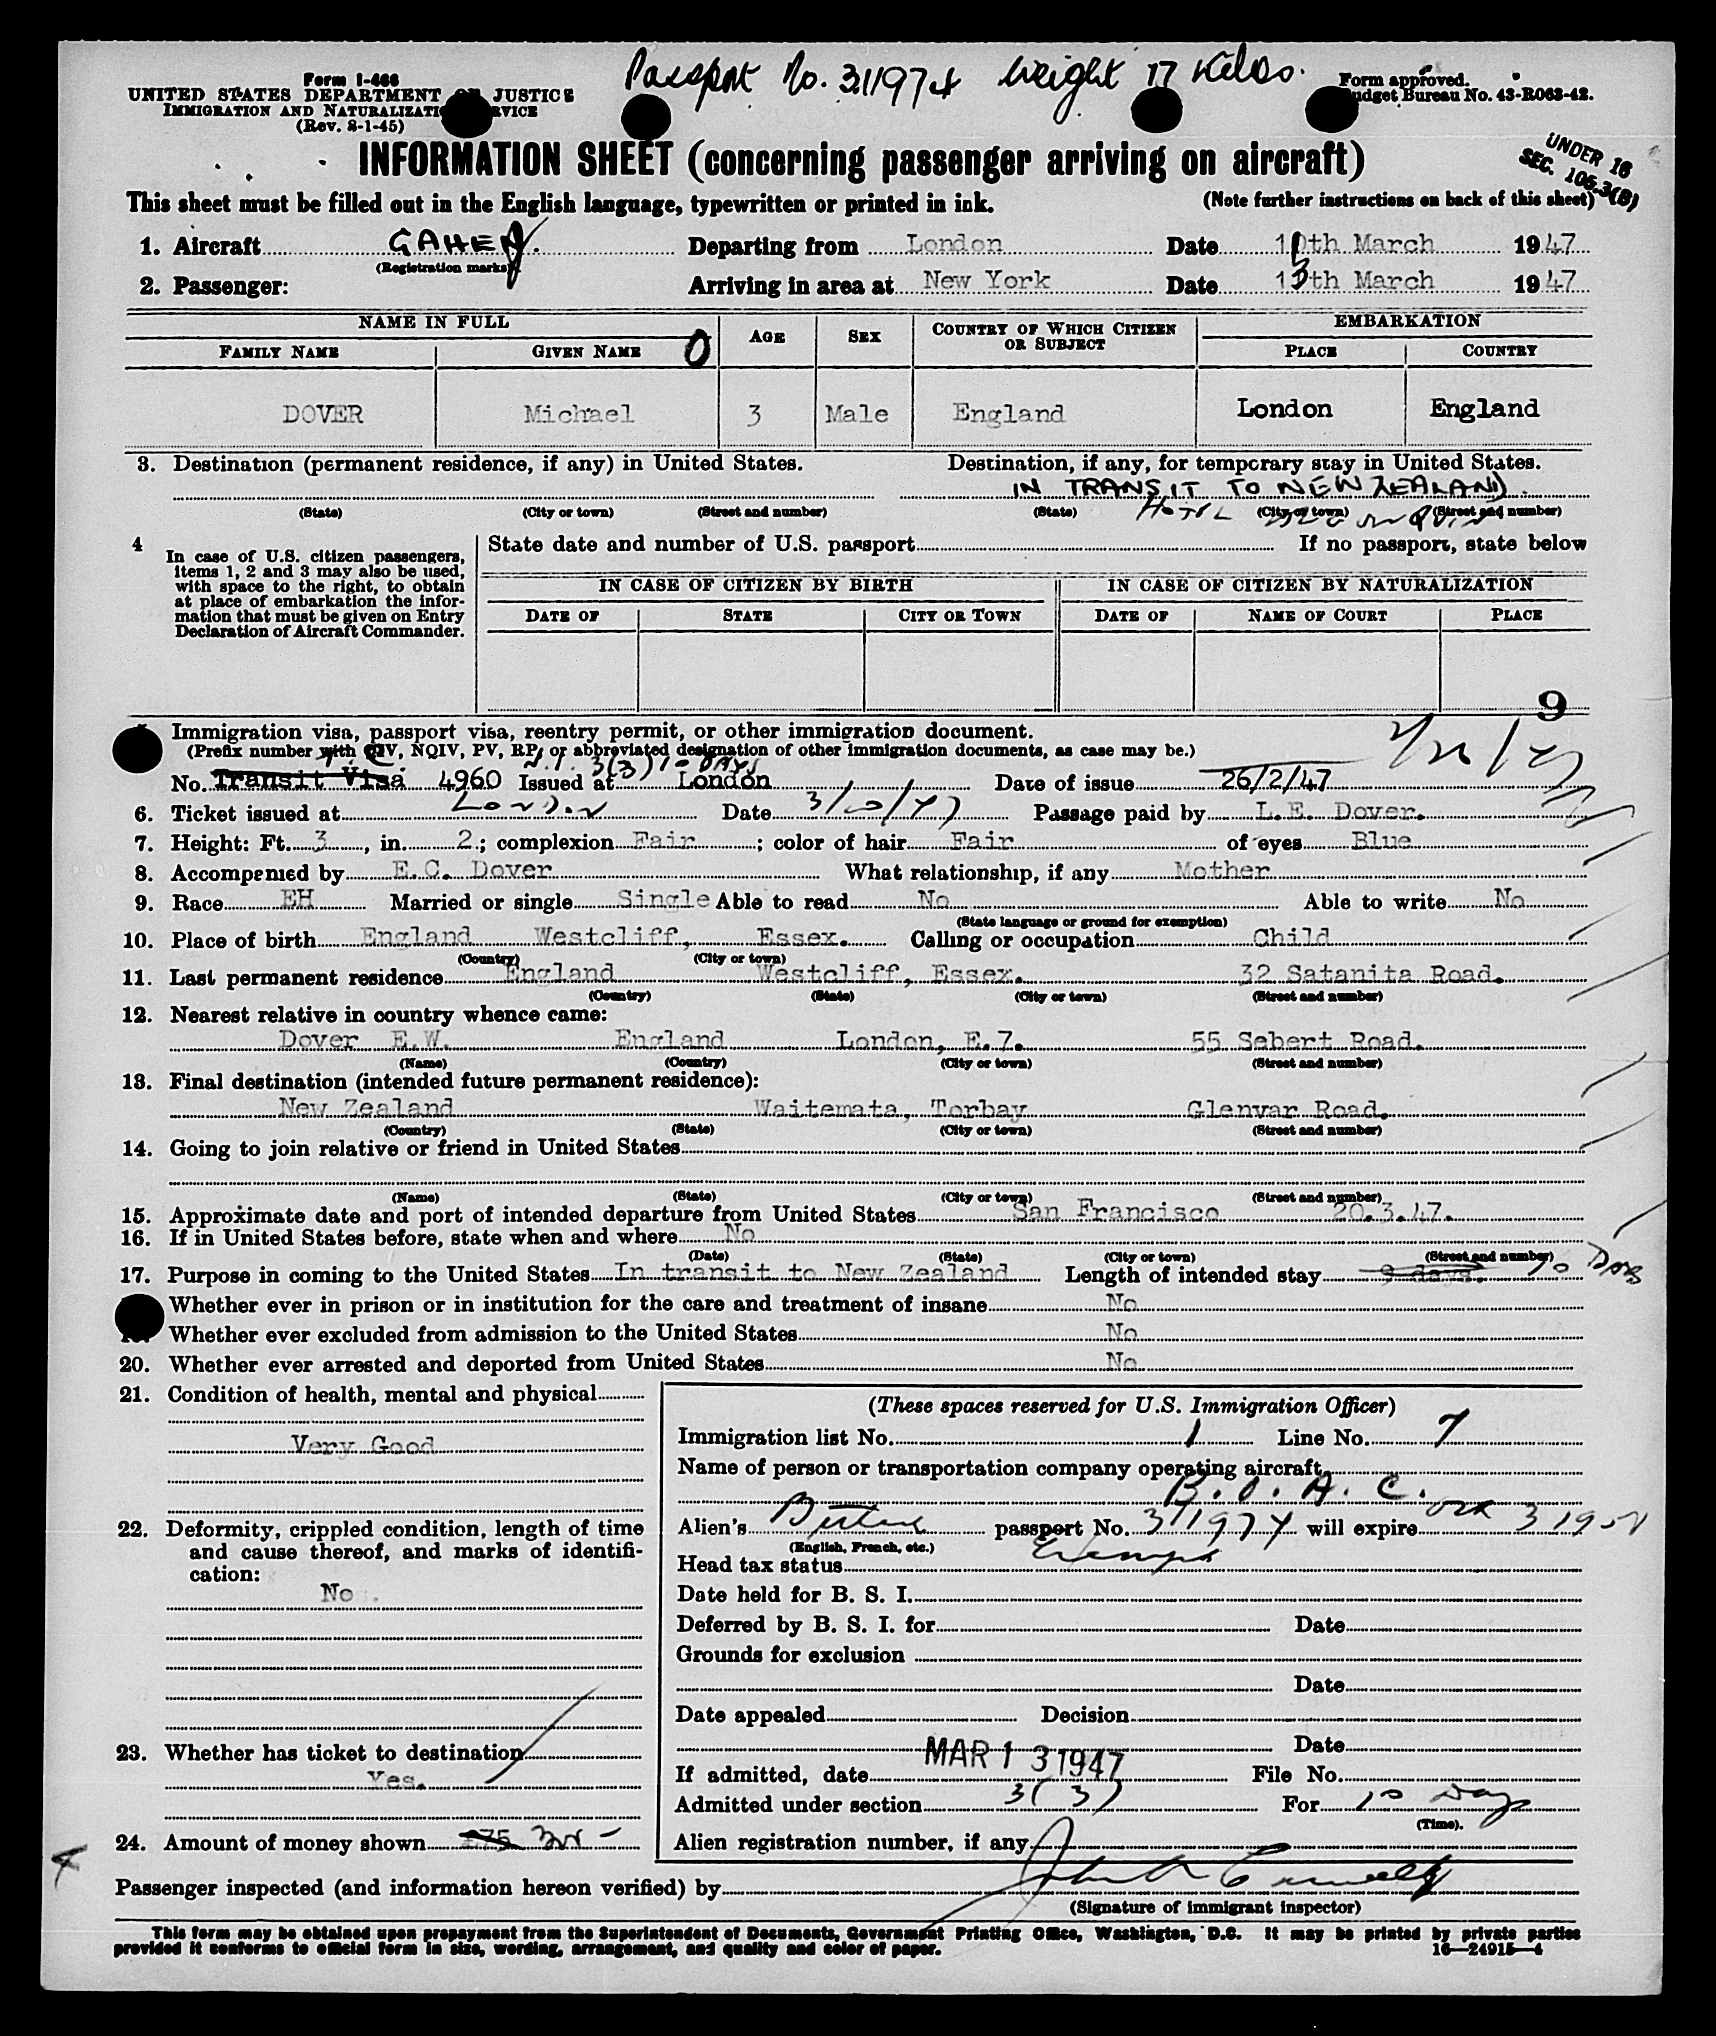 Passport No. 311974 Weight 17 Kilos.
Form I-466
UNITED STATES DEPARTMENT OF JUSTICE
IMMIGRATION AND NATURALIZATION SERVICE
(Rev. 8-1-45)
Form approved.
Budget Bureau No. 43-R063-42.
INFORMATION SHEET (concerning passenger arriving on aircraft)
UNDER 16
SEC. 105.3(B)
This sheet must be filled out in the English language, typewritten or printed in ink. (Note further instructions on back of this sheet)
1. Aircraft GAHEN. Departing from London Date 10th March 1947
(Registration marks)
2. Passenger: Arriving in area at New York Date 13th March 1947
NAME IN FULL AGE SEX COUNTRY OF WHICH CITIZEN OR SUBJECT EMBARKATION
FAMILY NAME GIVEN NAME 0 PLACE COUNTRY
DOVER Michael 3 Male England London England
3. Destination (permanent residence, if any) in United States. Destination, if any, for temporary stay in United States.
IN TRANSIT TO NEW ZEALAND.
(State) (City or town) (Street and number) (State) (City or town) (Street and number)
HOTEL
4 In case of U.S. citizen passengers, items 1, 2 and 3 may also be used, with space to the right, to obtain at place of embarkation the information that must be given on Entry Declaration of Aircraft Commander.
State date and number of U.S. passport If no passport, state below
IN CASE OF CITIZEN BY BIRTH IN CASE OF CITIZEN BY NATURALIZATION
DATE OF STATE CITY OR TOWN DATE OF NAME OF COURT PLACE
9
Immigration visa, passport visa, reentry permit, or other immigration document.
(Prefix number with QIV, NQIV, PV, RP, or abbreviated designation of other immigration documents, as case may be.)
3(3) 10 DAYS
No. Transit Visa 4960 Issued at London Date of issue 26/2/47
6. Ticket issued at London Date 3/10/47 Passage paid by L.E. Dover.
7. Height: Ft. 3, in. 2; complexion Fair; color of hair Fair of eyes Blue
8. Accompanied by E.C. Dover What relationship, if any Mother
9. Race EH Married or single Single Able to read No Able to write No
(State language or ground for exemption)
10. Place of birth England Westcliff, Essex. Calling or occupation Child
(Country) (City or town)
11. Last permanent residence England Westcliff, Essex. 32 Satanita Road.
(Country) (State) (City or town) (Street and number)
12. Nearest relative in country whence came:
Dover E.W. England London, E.7. 55 Sebert Road.
(Name) (Country) (City or town) (Street and number)
13. Final destination (intended future permanent residence):
New Zealand Waitemata, Torbay Glenvar Road.
(Country) (State) (City or town) (Street and number)
14. Going to join relative or friend in United States
(Name) (State) (City or town) (Street and number)
15. Approximate date and port of intended departure from United States San Francisco 20.3.47.
16. If in United States before, state when and where No
(Date) (State) (City or town) (Street and number)
17. Purpose in coming to the United States In transit to New Zealand Length of intended stay 9 days. 10 Days
Whether ever in prison or in institution for the care and treatment of insane No
Whether ever excluded from admission to the United States No
20. Whether ever arrested and deported from United States No
21. Condition of health, mental and physical
Very Good
22. Deformity, crippled condition, length of time and cause thereof, and marks of identification:
No.
23. Whether has ticket to destination
Yes.
24. Amount of money shown £75
(These spaces reserved for U.S. Immigration Officer)
Immigration list No. 1 Line No. 7
Name of person or transportation company operating aircraft
B.O.A.C.
Alien's British passport No. 311974 will expire Oct 3 1951
(English, French, etc.)
Head tax status Exempt
Date held for B. S. I.
Deferred by B. S. I. for Date
Grounds for exclusion
Date
Date appealed Decision
Date
If admitted, date MAR 13 1947 File No.
Admitted under section 3(3) For 10 Days
(Time).
Alien registration number, if any
Passenger inspected (and information hereon verified) by
(Signature of immigrant inspector)
This form may be obtained upon prepayment from the Superintendent of Documents, Government Printing Office, Washington, D.C. It may be printed by private parties
provided it conforms to official form in size, wording, arrangement, and quality and color of paper. 16—24915—4